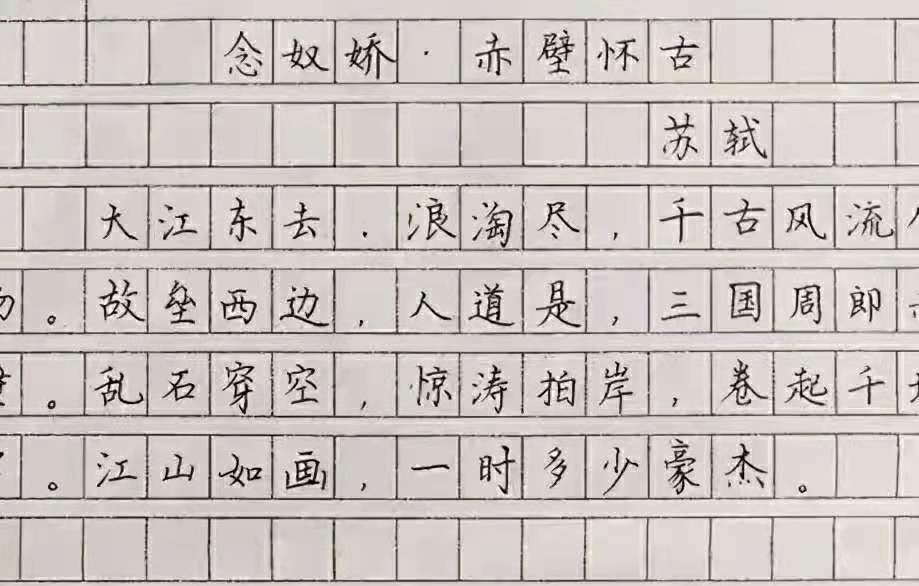 念奴娇·赤壁怀古
苏轼
大江东去，浪淘尽，千古风流
。故垒西边，人道是，三国周郎
。乱石穿空，惊涛拍岸，卷起千
。江山如画，一时多少豪杰。